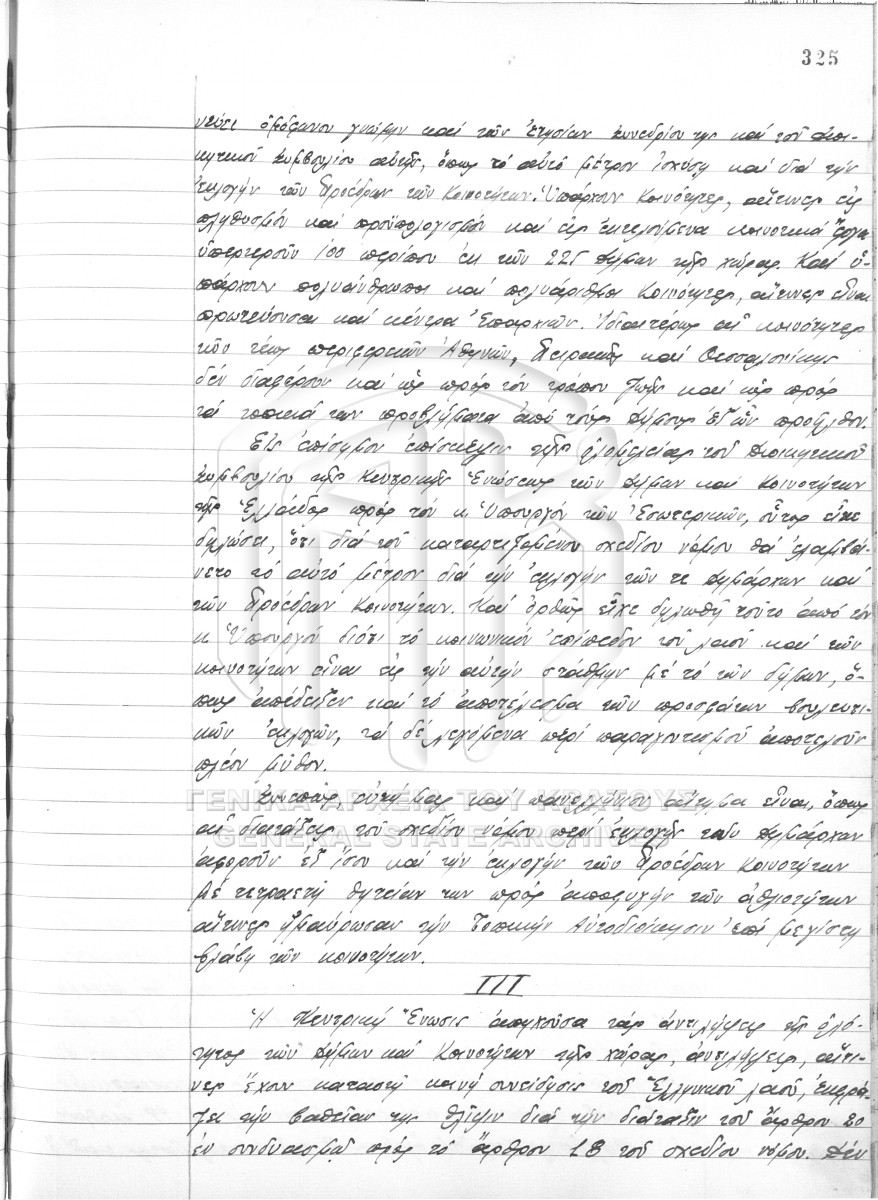 325
ὁμόφωνον γνώμην καί τῶν ἐτησίων Συνεδρίων της καί τοῦ Διοι-
κητικοῦ Συμβουλίου αὐτῆς, ὅπως τό αὐτό μέτρον ἰσχύσῃ καί διά τήν
ἐκλογήν τῶν Προέδρων τῶν Κοινοτήτων. Ὑπάρχουν Κοινότητες, αἵτινες εἰς
πληθυσμόν καί προϋπολογισμόν καί εἰς ἐκτελούμενα κοινοτικά ἔργα
ὑπερτεροῦν 100 περίπου ἐκ τῶν 225 Δήμων τῆς χώρας. Καί ὑ-
πάρχουν πολυάνθρωποι καί πολυάριθμοι Κοινότητες, αἵτινες εἶναι
πρωτεύουσαι καί κέντρα Ἐπαρχιῶν. Ἰδιαιτέρως αἱ κοινότητες
τῶν τέως περιφερειῶν Ἀθηνῶν, Πειραιῶς καί Θεσσαλονίκης
δέν διαφέρουν καί ὡς πρός τόν τρόπον ζωῆς καί ὡς πρός
τά τοπικά των προβλήματα ἀπό τούς Δήμους ἐξ ὧν προῆλθον.
Εἰς ἐπίσημον ἐπίσκεψιν τῆς ὁλομελείας τοῦ Διοικητικοῦ
Συμβουλίου τῆς Κεντρικῆς Ἑνώσεως τῶν Δήμων καί Κοινοτήτων
τῆς Ἑλλάδος πρός τόν κ. Ὑπουργόν τῶν Ἐσωτερικῶν, οὗτος εἶχε
δηλώσει, ὅτι διά τοῦ καταρτιζομένου σχεδίου νόμου θά ἐλαμβά-
νετο τό αὐτό μέτρον διά τήν ἐκλογήν τῶν τε Δημάρχων καί
τῶν Προέδρων Κοινοτήτων. Καί ὀρθῶς εἶχε δηλωθῆ τοῦτο ἀπό τόν
κ. Ὑπουργόν διότι τό κοινωνικόν ἐπίπεδον τοῦ λαοῦ καί τῶν
κοινοτήτων εἶναι εἰς τήν αὐτήν στάθμην μέ τό τῶν δήμων, ὅ-
πως ἀπέδειξεν καί τό ἀποτέλεσμα τῶν προσφάτων βουλευτι-
κῶν ἐκλογῶν, τά δέ λεγόμενα περί παραγοντισμοῦ ἀποτελοῦν
πλέον μῦθον.
Συνεπῶς, εὐχή μας καί πανελλήνιον αἴτημα εἶναι, ὅπως
αἱ διατάξεις τοῦ σχεδίου νόμου περί ἐκλογῆς τῶν Δημάρχων
ἀφοροῦν ἐξ ἴσου καί τήν ἐκλογήν τῶν Προέδρων Κοινοτήτων
μέ τετραετῆ θητείαν των πρός ἀποφυγήν τῶν ἀθλιοτήτων
αἵτινες ἠμαύρωσαν τήν Τοπικήν Αὐτοδιοίκησιν ἐπί μεγίστῃ
βλάβῃ τῶν κοινοτήτων.
III
Ἡ Κεντρική Ἕνωσις ἀπηχοῦσα τάς ἀντιλήψεις τῆς ὁλό-
τητος τῶν Δήμων καί Κοινοτήτων τῆς χώρας, ἀντιλήψεις, αἵτι-
νες ἔχουν καταστῆ κοινή συνείδησις τοῦ Ἑλληνικοῦ λαοῦ, ἐκφρά-
ζει τήν βαθεῖαν της θλῖψιν διά τήν διάταξιν τοῦ ἄρθρου 20
ἐν συνδυασμῷ πρός τό ἄρθρον 18 τοῦ σχεδίου νόμου. Δέν
ΓΕΝΙΚΑ ΑΡΧΕΙΑ ΤΟΥ ΚΡΑΤΟΥΣ
GENERAL STATE ARCHIVES